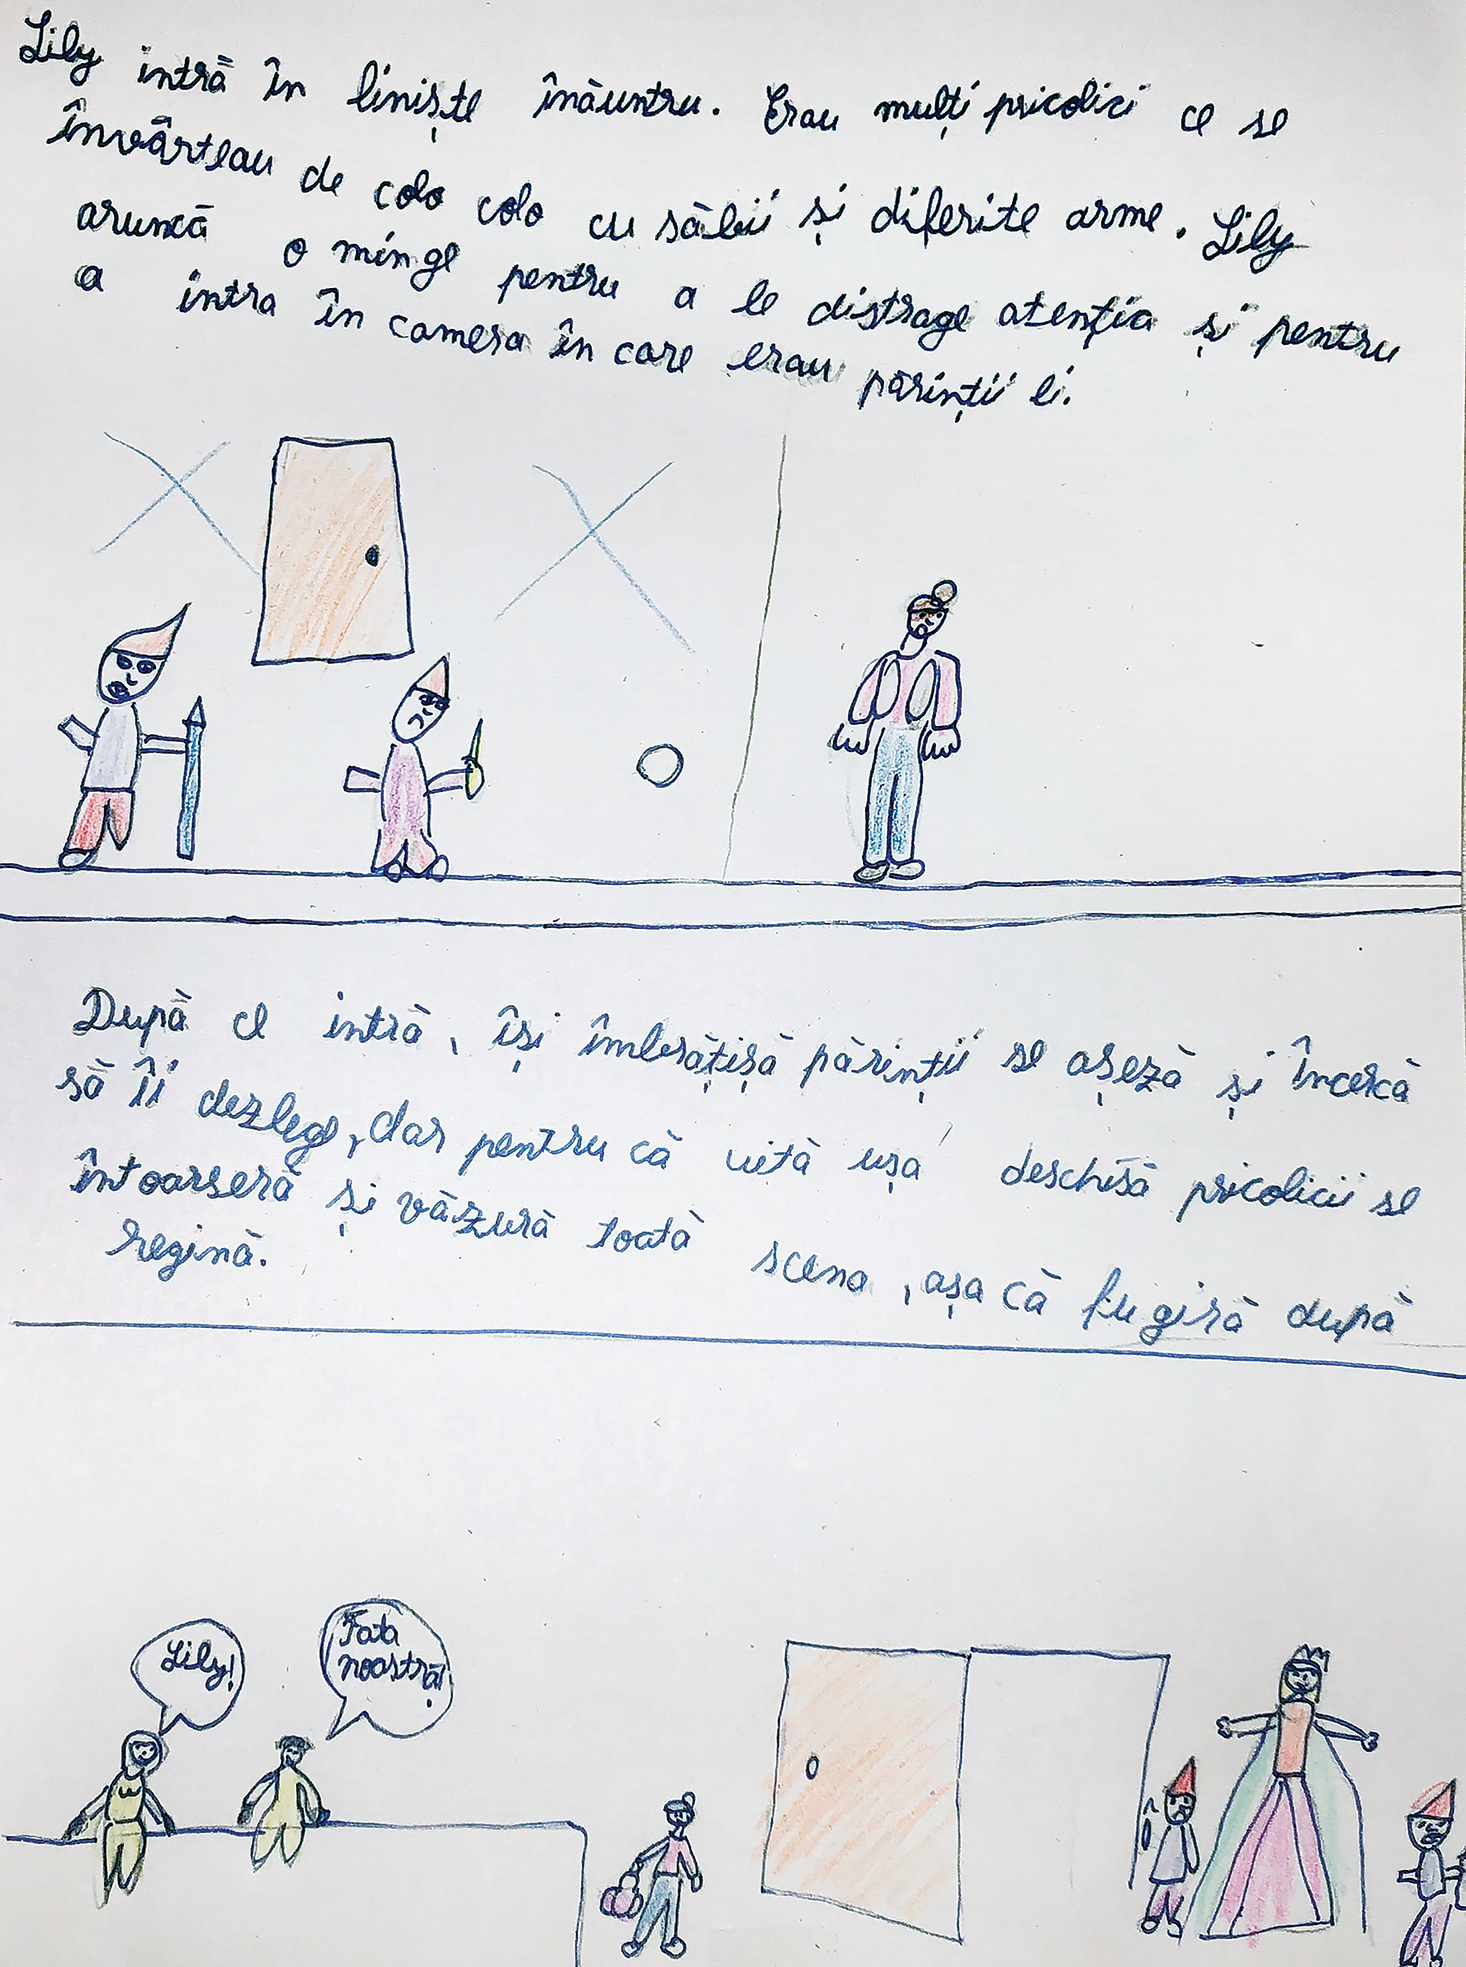 Lily intră în liniște înăuntru. Erau mulți pricolici ce se
învârteau de colo colo cu săbii și diferite arme. Lily
aruncă o minge pentru a le distrage atenția și pentru
a intra în camera în care erau părinții ei.
După ce intră, își îmbrățișă părinții se așeză și încercă
să îi dezlege, dar pentru că uită ușa deschisă pricolicii se
întoarseră și văzură toată scena, așa că fugiră după
regină.
Lily!
Fata
noastră!